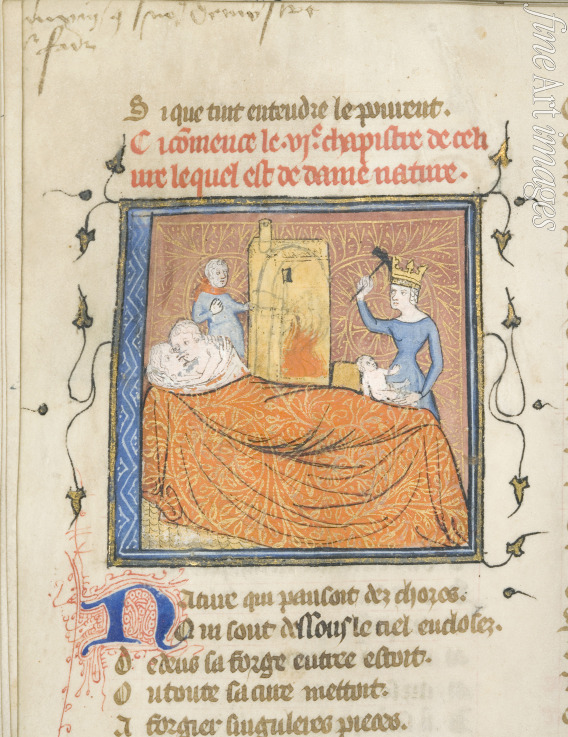 S i que tuit entendre le pouvent.
C i cõmence le .vjᵉ. chapistre de ce li
ure le quel est de dame nature.
N ature qui pansoit dez chozes.
Q ui sont dessous le ciel enclosez.
D edens sa forge entree estoit.
O u toute sa cure mettoit.
A forgier singulieres pieces.
fine art images